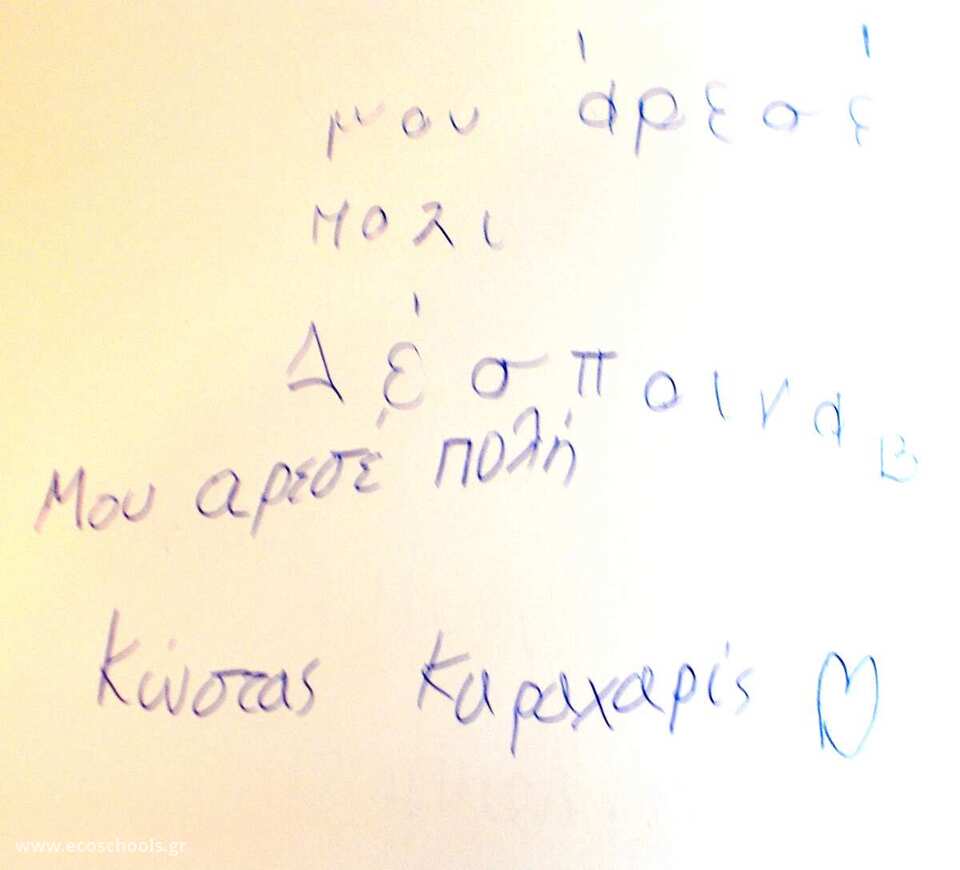 μου άρεσέ
πολι
Δέσποινα B
Μου αρεσέ πολή
Κώστας Καραχαρίς
www.ecoschools.gr